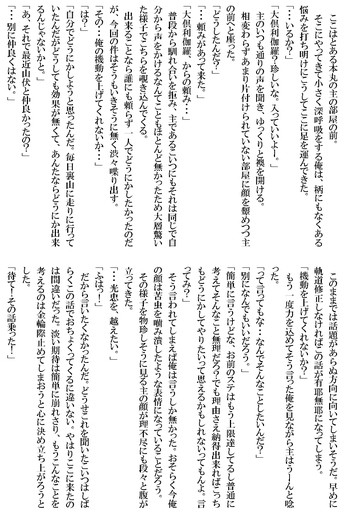 ここはとある本丸の主の部屋の前
そこにやってきて小さく深呼吸をする俺は、柄にもなくある
悩みを打ち明けにこうしてここに足を運んできた。
「・・いるか?」
「大倶利伽羅?珍しいな。入っていいよー。」
主のいつも通りの声を聞き、ゆっくりと襖を開ける。
相変わらずあまり片付けられていない部屋に顔を顰めつつ主
の前へと座った。
「どうしたんだ?」
「・・頼みがあって来た。」
「大倶利伽羅、からの頼み・・」
普段から馴れ合いを拒み、主であるこいつにもそれは同じで自
分から声をかけるなんてことほとんど無かったため大層驚い
た様子でこちらを覗き込んでくる。
出来ることなら誰にも頼らず一人でどうにかしたかったのだ
が、今回の件はそうもいきそうに無く渋々喋り出す。
「その・・俺の機動を上げてくれないか・・」
「は?」
「自分でどうにかしようと思ったんだ。毎日裏山に走りに行って
いたんだがどうしても効果が無くて、あんたならどうにか出来
るんじゃないかと」
「あ、それで最近山伏と仲良かったの?」
「・・別に仲良くはない。」
このままでは話題があらぬ方向に向いてしまいそうだ。早めに
軌道修正しなければこの話が有耶無耶になってしまう。
「機動を上げてくれないか?」
もう一度力を込めてそう言った俺を見ながら主はうーんと唸
った。
「って言ってもな・・なんでそんなことしたいんだ?」
「別になんでもいいだろう。」
「簡単に言うけどな、お前のステはもう上限達してるし普通に
考えてそんなこと無理だろ?でも理由さえ納得出来ればこっち
もどうにかしてやりたいって思えるかもしれないってもんよ。言
ってみ?」
そう言われてしまえば俺は言うしか無かった。おそらく今俺
の顔は苦虫を噛み潰したような表情になっていることだろう。
その様子を物珍しそうに見る主の顔が理不尽にも段々と腹が
立ってきた。
「・・光忠を、越えたい。」
「ぶはっ!」
だから言いたくなかったんだ。どうせこれを聞いたこいつはしば
らくこの話でおちょくってくるに違いない。やはりここに来たの
は間違いだった。淡い期待は簡単に崩れさり、もうこんなことを
考えるのは金輪際止めてしまおうと心に決め立ち上がろうと
した。
「待て!その話乗った!」